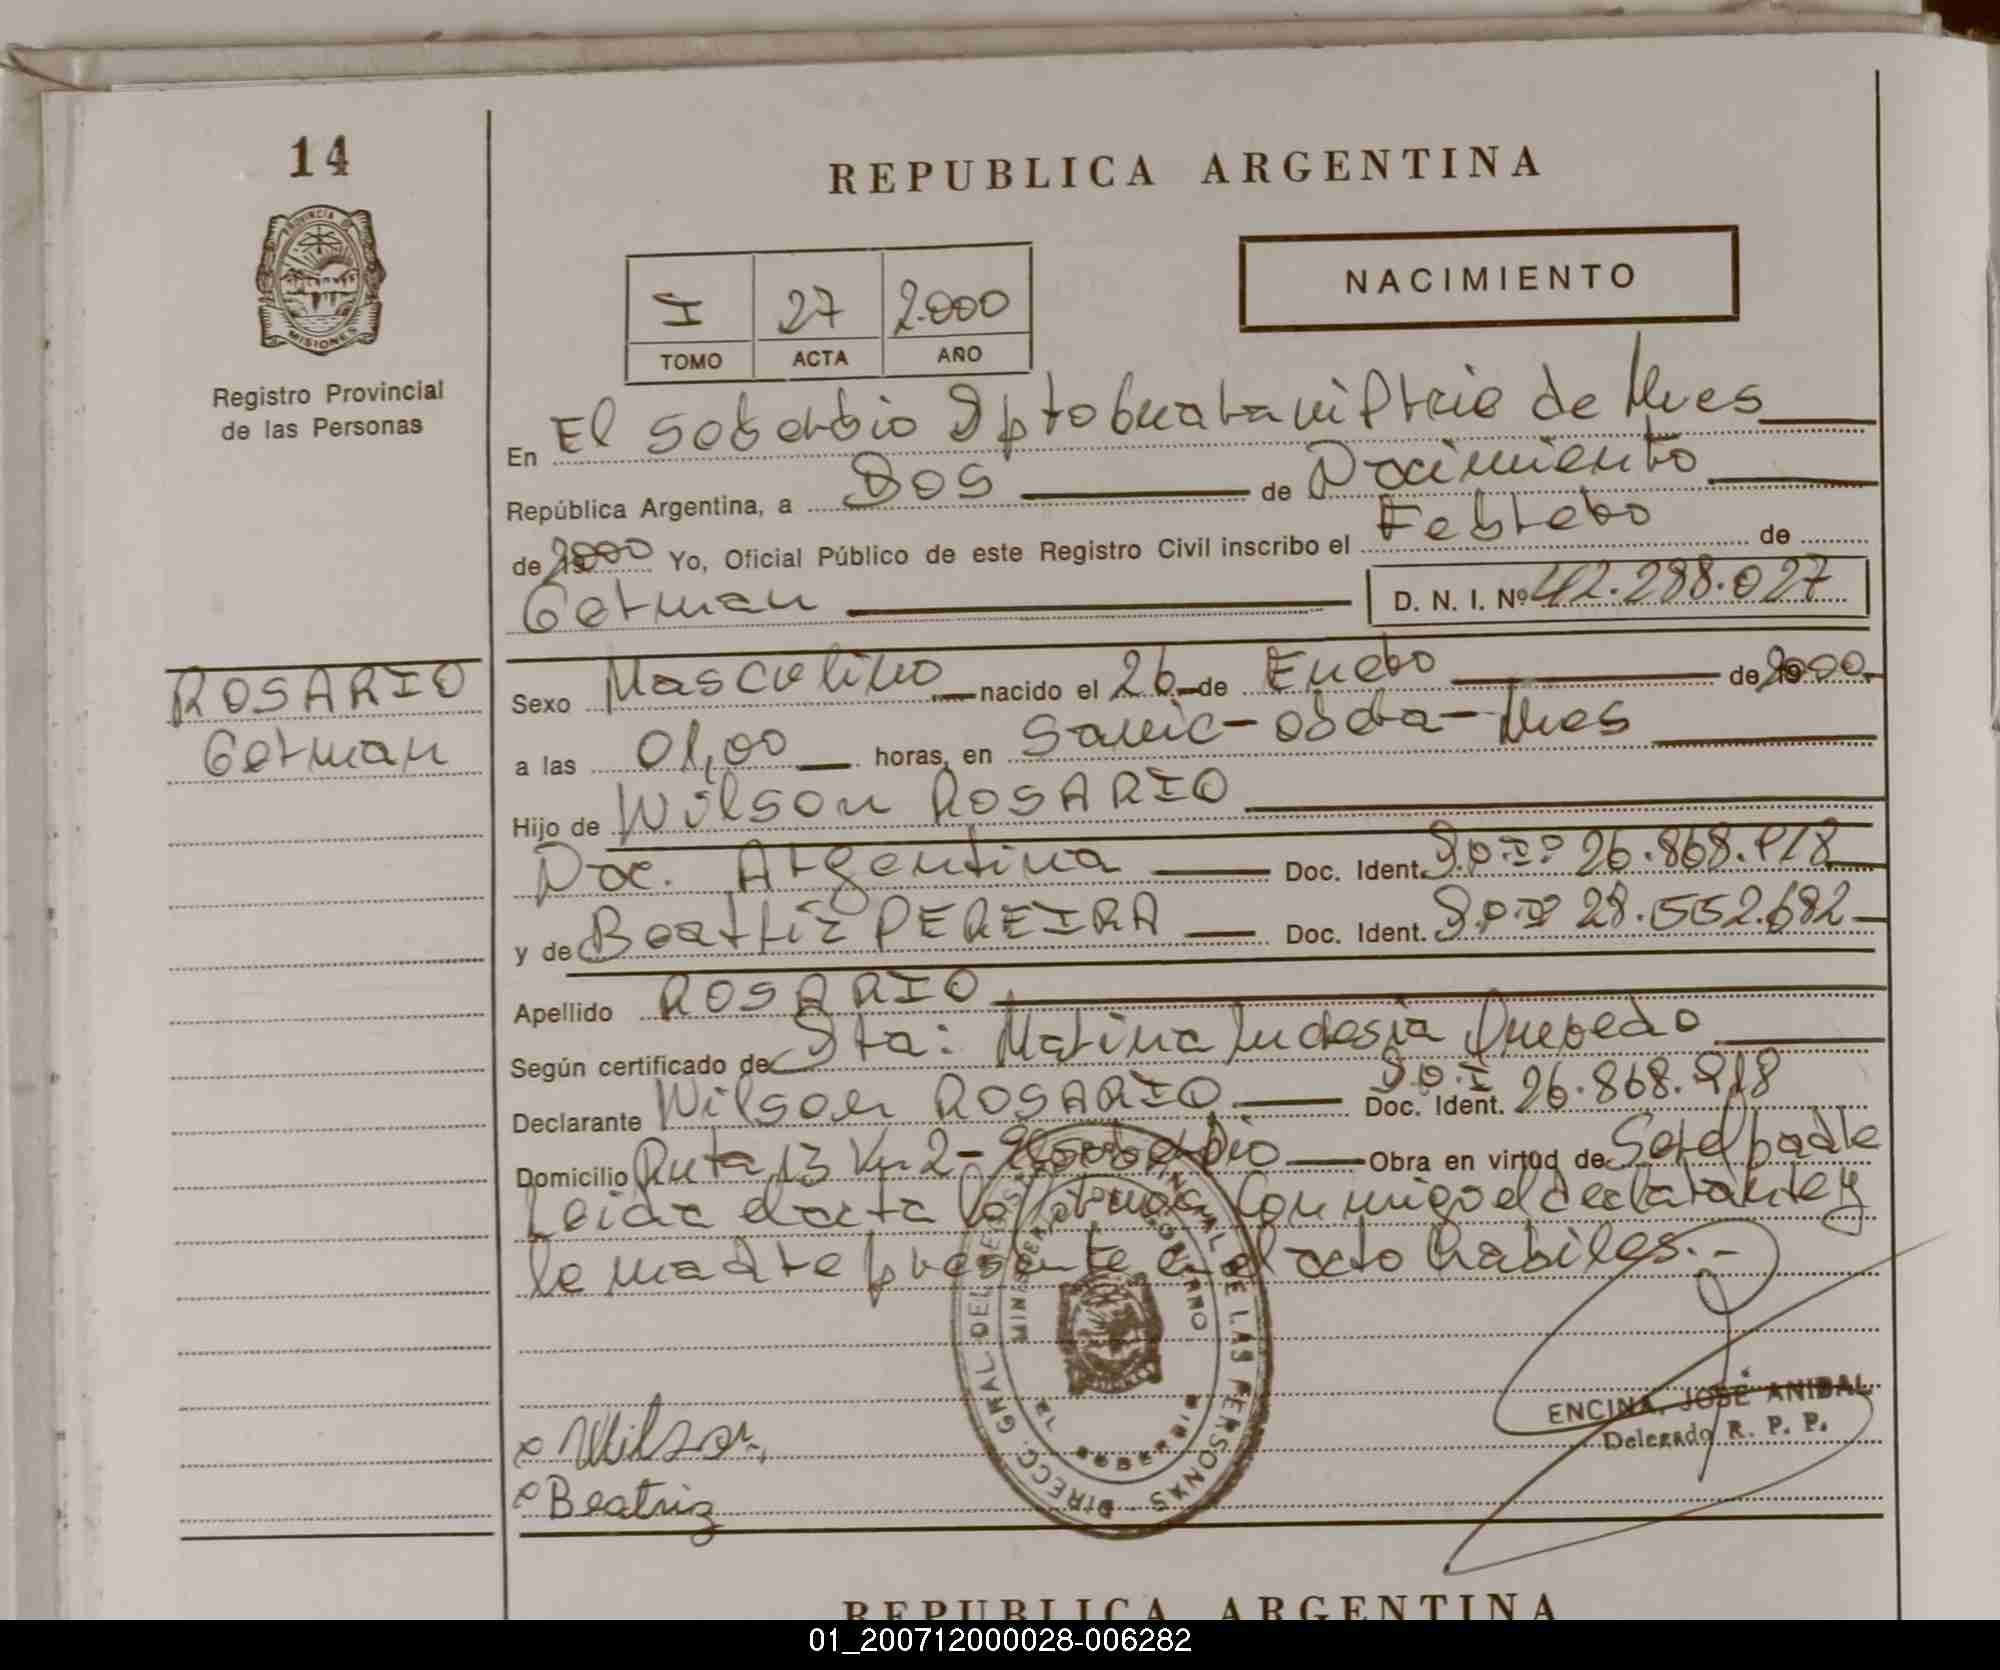 14
REPUBLICA ARGENTINA
PROVINCIA DE
MISIONES
Registro Provincial
de las Personas
I 27 2.000
TOMO ACTA AÑO
NACIMIENTO
En El Soberbio Dpto Guarani Pcie de Mnes
República Argentina, a Dos de Nacimiento
de 2000 Yo, Oficial Público de este Registro Civil inscribo el Febrero de
German D. N. I. Nº 42.288.027
ROSARIO
German
Sexo Masculino nacido el 26 de Enero de 2000
a las 01,00 horas, en Sanic - obera - Mnes
Hijo de Wilson ROSARIO
Nac. Argentina Doc. Ident. D.N.I. 26.868.918
y de Beatriz PEREIRA Doc. Ident. D.N.I. 28.552.682
Apellido ROSARIO
Según certificado de Sta: Marina Quebedo
Declarante Wilson ROSARIO Doc. Ident. D.N.I 26.868.918
Domicilio Ruta 13 Km 2 - El Soberbio Obra en virtud de Ser el padre
Leida el acta la firman conmigo el declarante y
la madre presente en el acto habiles.-
DIRECC. GRAL DEL DE LAS PERSONAS
SOBERBIO
Wilson
Beatriz
ENCINA, JOSÉ ANIBAL
Delegado R. P. P.
REPUBLICA ARGENTINA
01_200712000028-006282